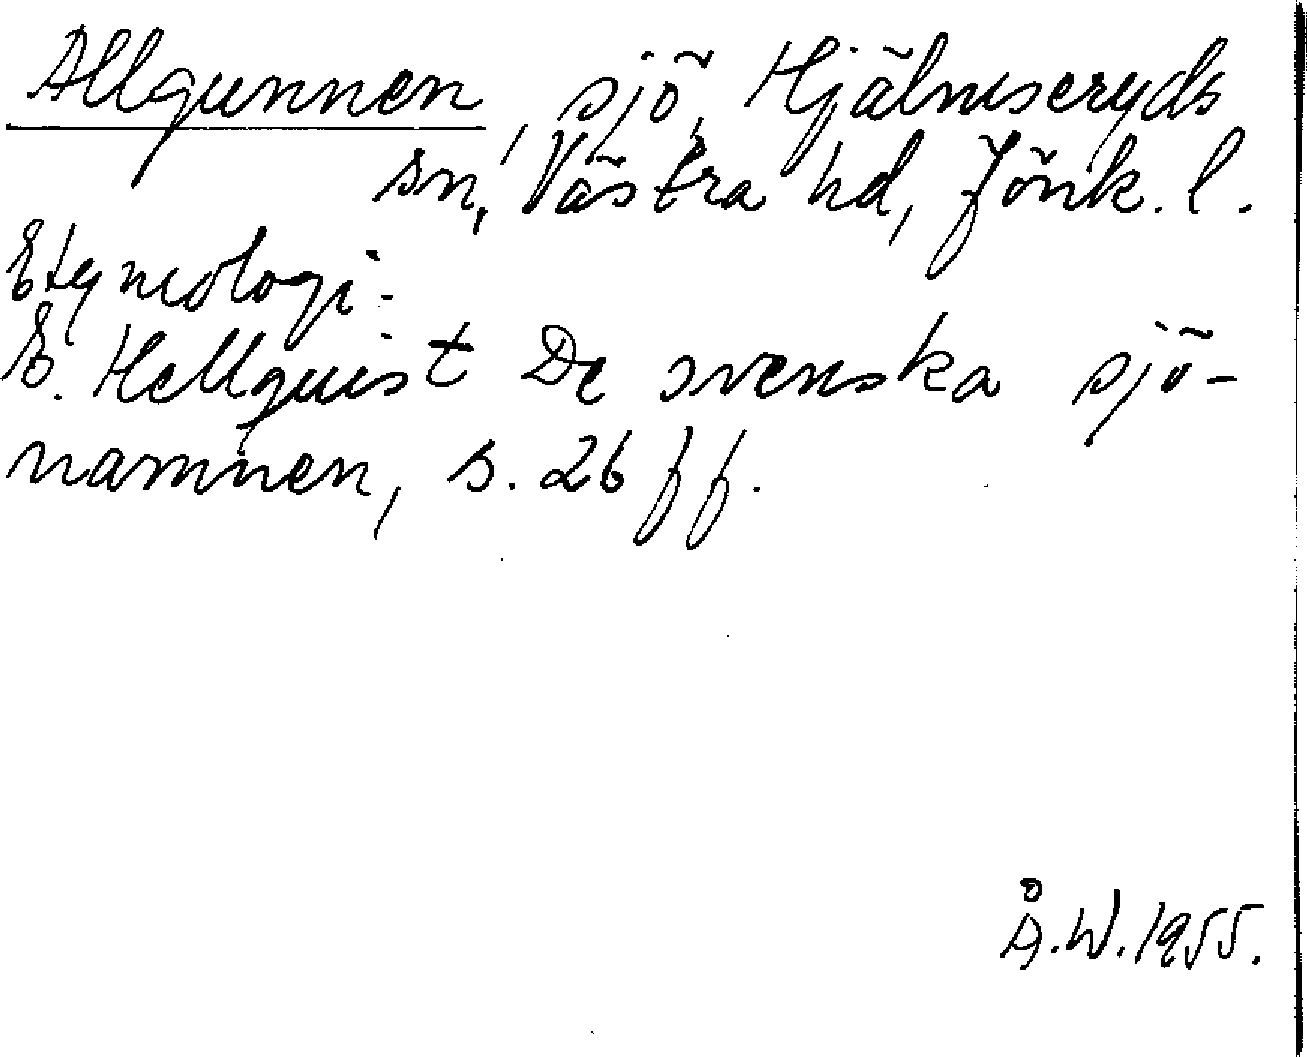 Allgunnen, sjö, Hjälmseryds
sn, Västra hd, Jönk. l.
Etymologi:
E. Hellquist De svenska sjö-
namnen, s. 26 ff.
Å.W. 1955.